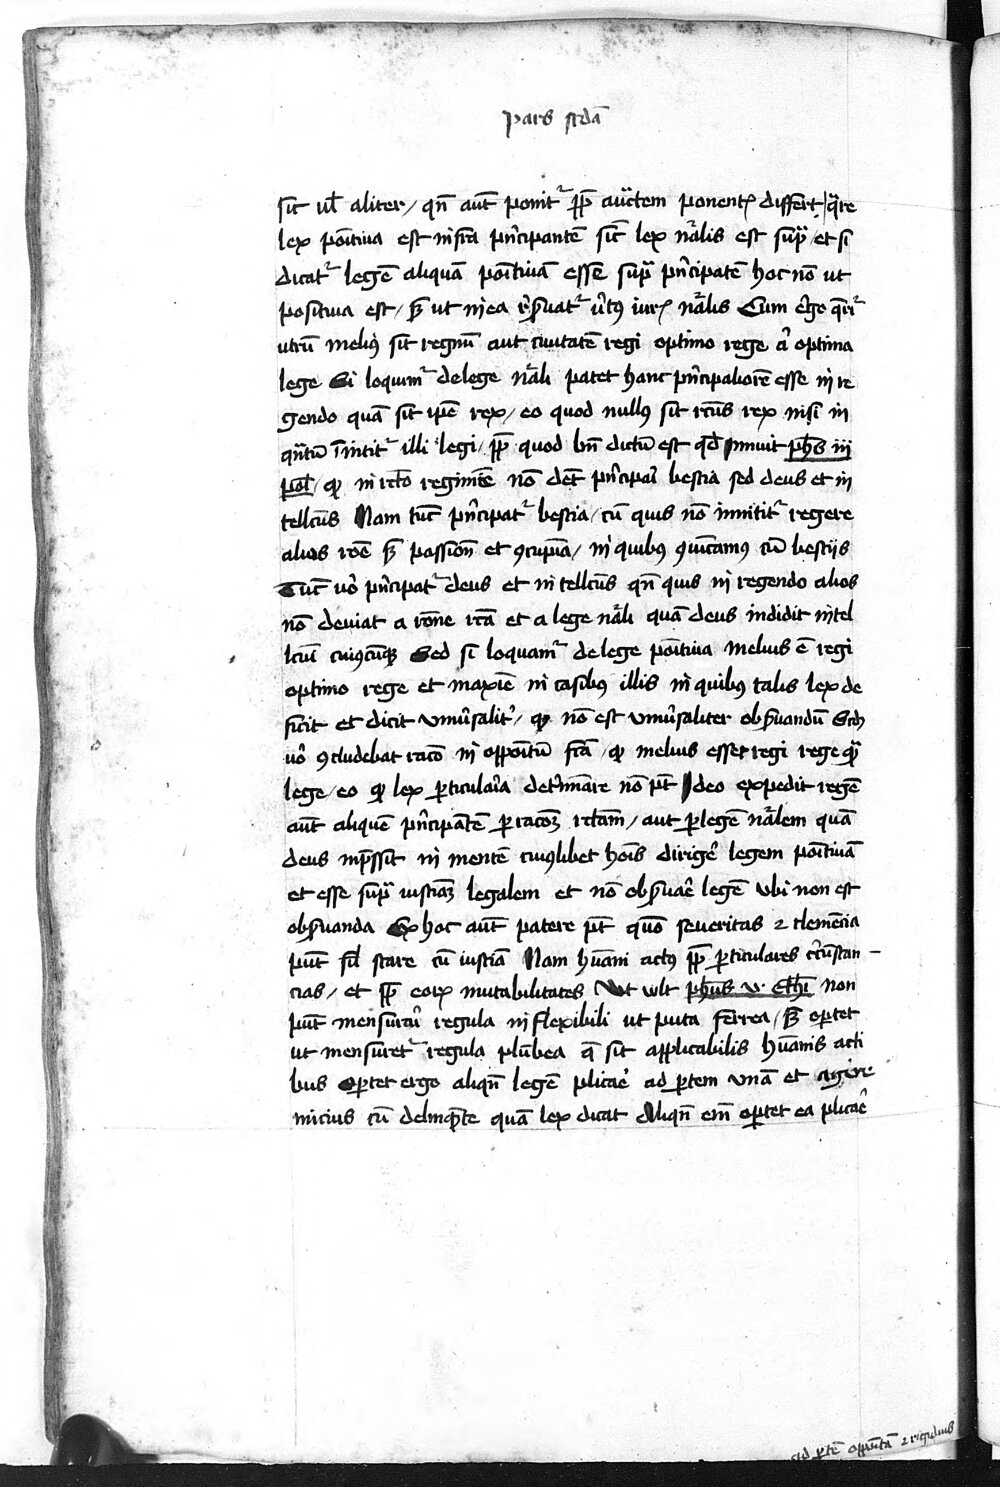 Pars scdā
sit ul̄ aliter / qn̄ aūt ponit᷑ ꝓp̄ auctem ponentꝭ differt / quare
lex poītiua est infra pn̄cipantē sic̄ lex nr̄alis est supͣ / et si
dicat᷑ legē aliquā poītiuā esse supͣ pn̄cipatē hoc nō ut
positiua est / sꝫ ut in ea rẜuat᷑ uͥtus iurꝭ nr̄alis Cum eͥgo qrͥ᷑
utrū meliꝰ sit regnū aut ciuitatē regi optimo rege aͥ optima
lege Si loqu̅mͥ᷑ de lege nr̄ali patet hanc pn̄cipaliorē esse in re
gendo quā sit ip̄e rex / eo quod nullꝰ sit rc̄us rex nisi in
qn̄tū īnitit᷑ illi legi / ꝓp̄ quod bn̄ dictū est qd̄ innuit ph̄s iij
pol̄ / ꝙ in rc̄o regimīe nō dēt pn̄cipaͥ bestia sed deus et in
tellc̄us Nam tūc pn̄cipat᷑ bestia / cū quis nō innitit᷑ regere
alios rōe sꝫ passion̄ et ꝯcupīa / in quibꝰ ꝯuīcamꝰ cū bestijs
Tūc uͦ pn̄cipat᷑ deus et intellc̄us qn̄ quis in regendo alios
nō deviat a rōne rc̄a et a lege nr̄ali quā deus indidit intel
lcūi cuiꝰcūqꝫ Sed si loquamͥ᷑ de lege poītiua melius ē regi
optimo rege et maxīe in casibꝰ illis in quibus talis lex de
ficit et dicit uniuͥsalitͥ / ꝙ nō est uniuͥsaliter obẜuandū Scd̄
uͦ ꝯcludebat racō in oppoītū fc̄a / ꝙ melius esset regi rege quͣ
lege / eo ꝙ lex ꝑticulaͥia detͥmīare nō pt̄ Ideo expedit regē
aūt aliquē pn̄cipātē ꝑ racōꝫ rc̄am / aut ꝑ legē nr̄alem quā
deus imp̄ssit in mentē cuiꝰlibet hoīs dirigeͥ legem poītiuā
et esse supͣ iustīaꝫ legalem et nō obẜuaͥe legē ubi non est
obẜuanda Ex hoc aūt patere pt̄ quō seueritas ⁊ clemēcia
pn̄t sil̄ stare cū iustīa Nam hūani actus ꝓp̄ ꝑticulares cͥcūstan-
cias / et ꝓp̄ eoꝝ mutabilitates Ut uult ph̄us v. Eth̄i non
pn̄t mensuraͥi regula inflexibili ut puta ferrea / sꝫ oꝑtet
ut mensuret᷑ regula plūbea q̄ sit applicabilis hūanis acti
bus oꝑtet ergo aliqn̄ legē plicaͥe ad ꝑtem unā et agere
micius cū delinqͥ̄te quā lex dicat Aliqn̄ em̄ oꝑtet ea plicaͥe
ad ꝑtē oppoītā ⁊ rigidius